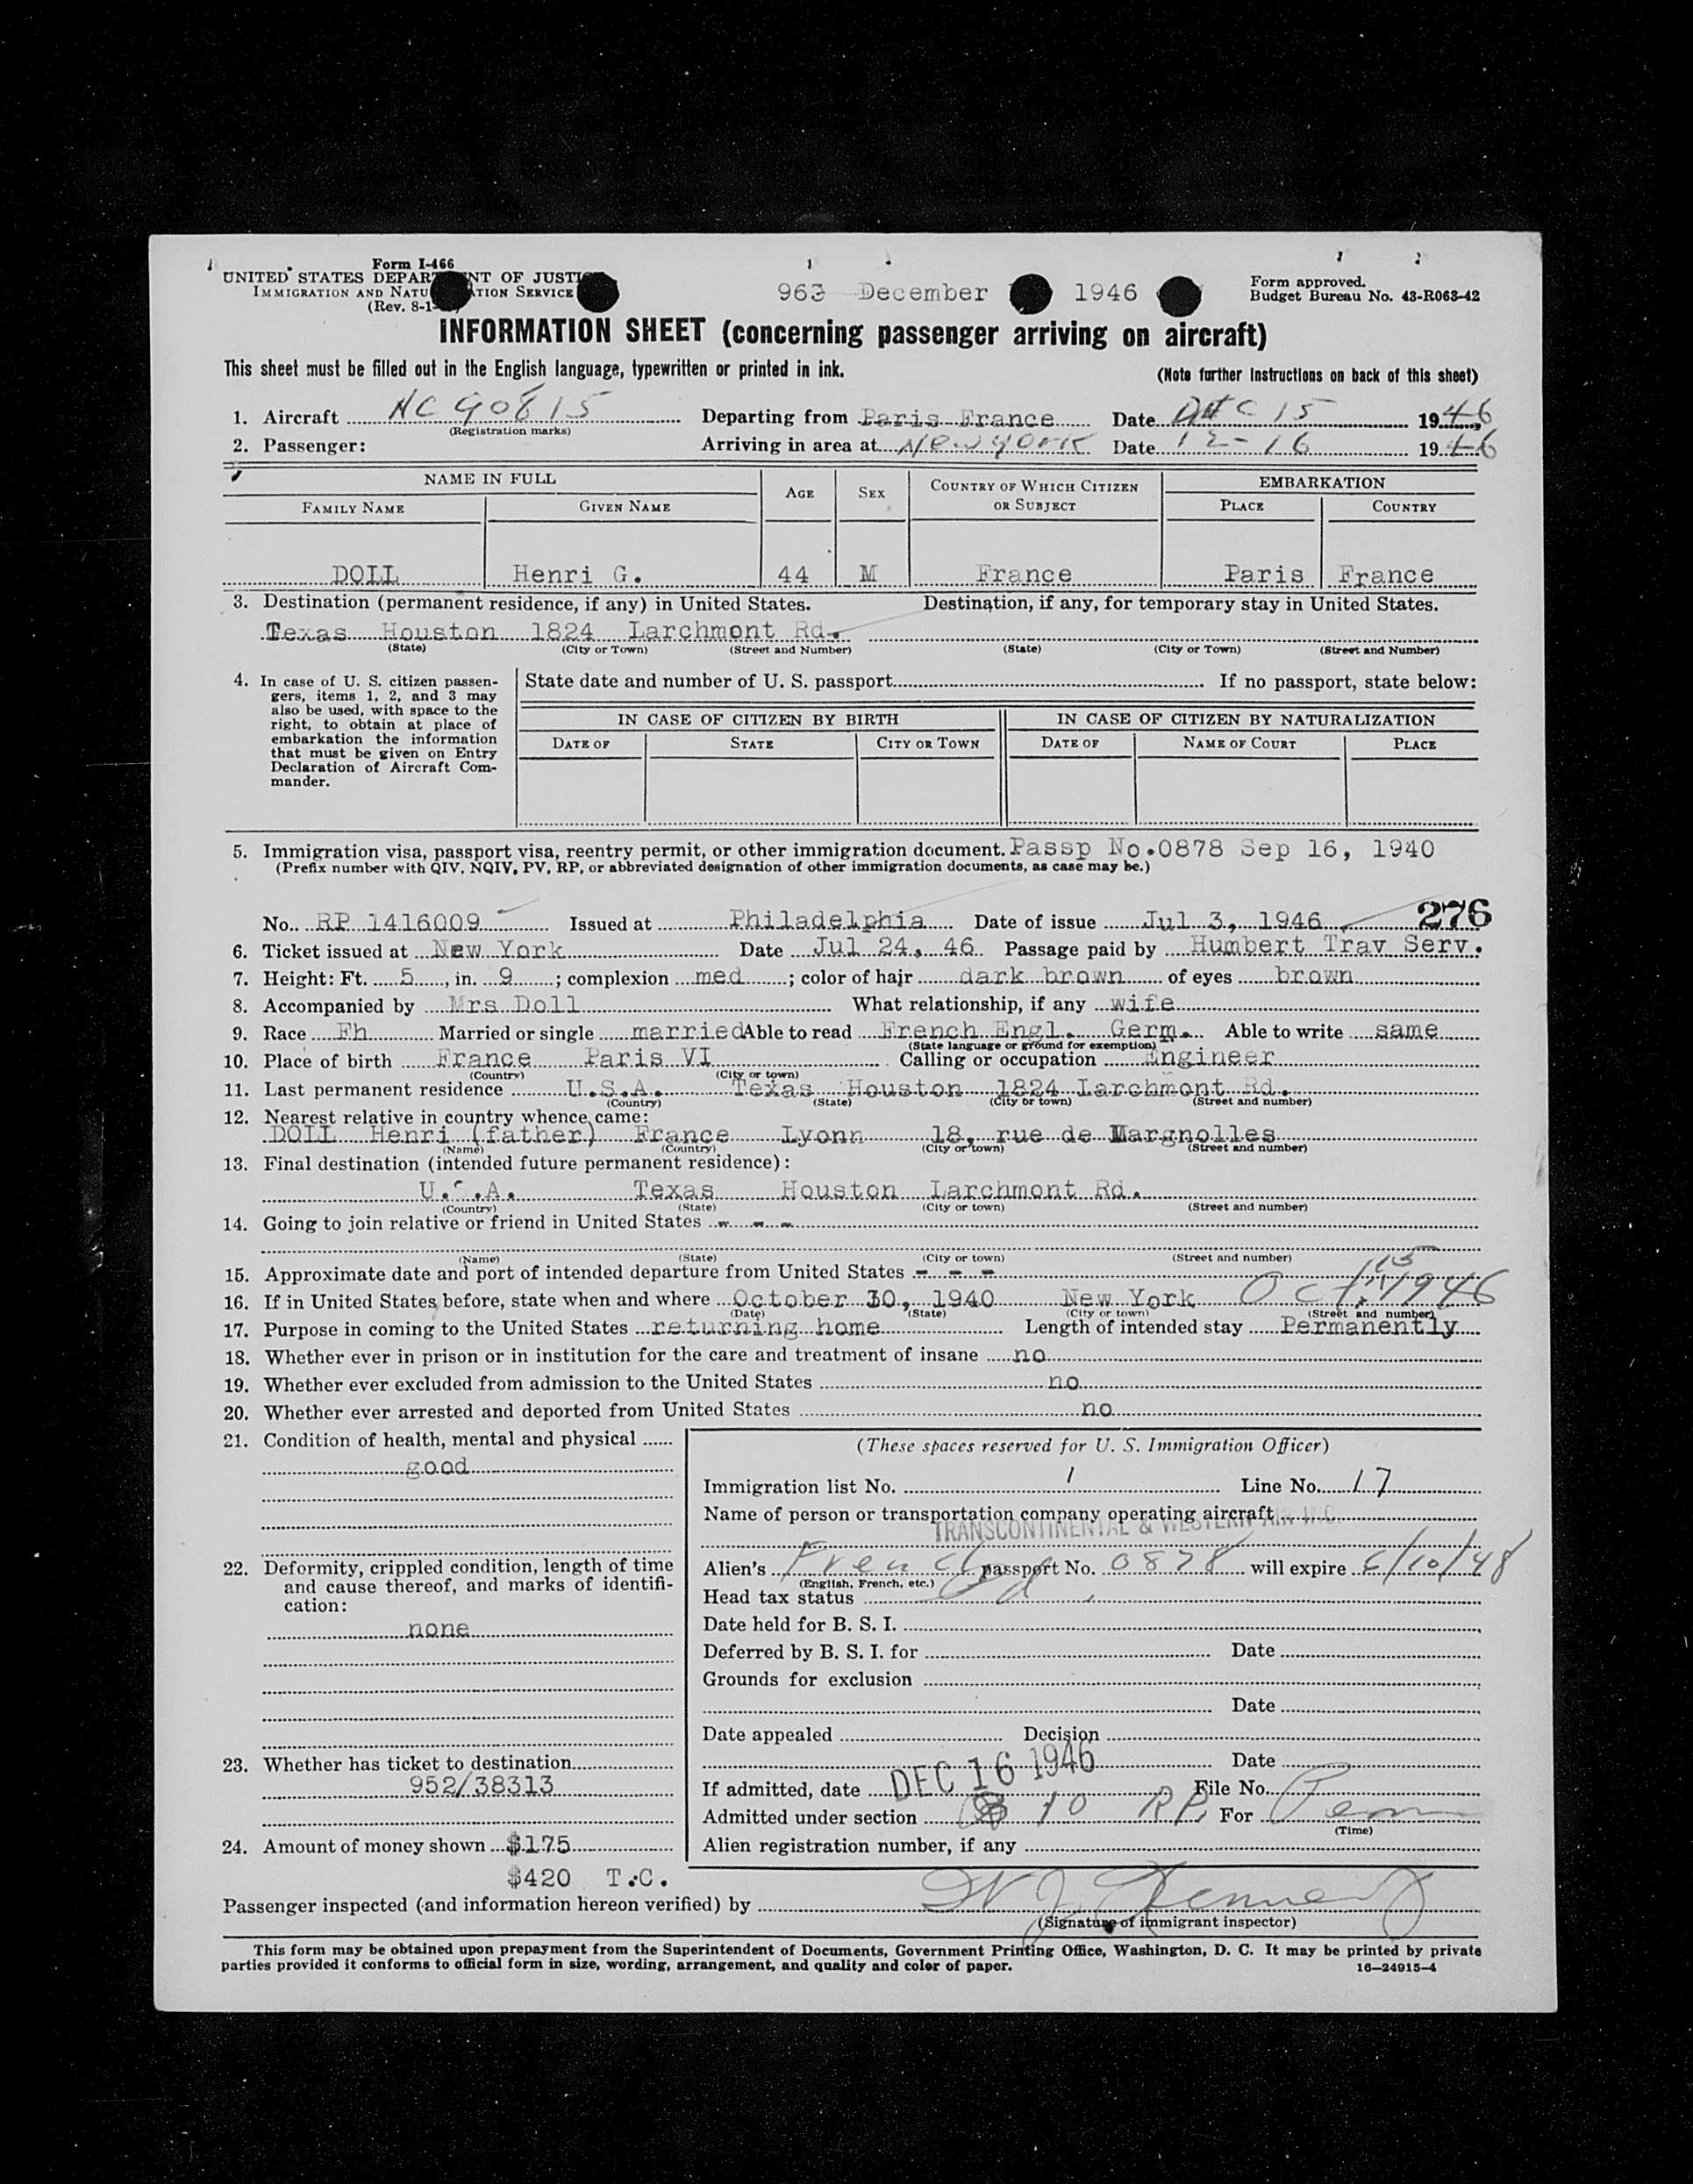 Form I-466
UNITED STATES DEPARTMENT OF JUSTICE
IMMIGRATION AND NATURALIZATION SERVICE
(Rev. 8-1-
963 December 1946
Form approved.
Budget Bureau No. 43-R063-42
INFORMATION SHEET (concerning passenger arriving on aircraft)
This sheet must be filled out in the English language, typewritten or printed in ink.
(Note further instructions on back of this sheet)
1. Aircraft NC 90815 Departing from Paris France Date DEC 15 1946
(Registration marks)
2. Passenger: Arriving in area at New York Date 12-16 1946
NAME IN FULL AGE SEX COUNTRY OF WHICH CITIZEN OR SUBJECT EMBARKATION
FAMILY NAME GIVEN NAME PLACE COUNTRY
DOLL Henri G. 44 M France Paris France
3. Destination (permanent residence, if any) in United States. Destination, if any, for temporary stay in United States.
Texas Houston 1824 Larchmont Rd.
(State) (City or Town) (Street and Number) (State) (City or Town) (Street and Number)
4. In case of U. S. citizen passen-
gers, items 1, 2, and 3 may
also be used, with space to the
right, to obtain at place of
embarkation the information
that must be given on Entry
Declaration of Aircraft Com-
mander.
State date and number of U. S. passport If no passport, state below:
IN CASE OF CITIZEN BY BIRTH IN CASE OF CITIZEN BY NATURALIZATION
DATE OF STATE CITY OR TOWN DATE OF NAME OF COURT PLACE
5. Immigration visa, passport visa, reentry permit, or other immigration document. Passp No.0878 Sep 16, 1940
(Prefix number with QIV, NQIV, PV, RP, or abbreviated designation of other immigration documents, as case may be.)
276
No. RP 1416009 Issued at Philadelphia Date of issue Jul 3, 1946
6. Ticket issued at New York Date Jul 24, 46 Passage paid by Humbert Trav Serv.
7. Height: Ft. 5, in. 9; complexion med; color of hair dark brown of eyes brown
8. Accompanied by Mrs Doll What relationship, if any wife
9. Race Fh Married or single married Able to read French Engl. Germ. Able to write same
(State language or ground for exemption)
10. Place of birth France Paris VI Calling or occupation Engineer
(Country) (City or town)
11. Last permanent residence U.S.A. Texas Houston 1824 Larchmont Rd.
(Country) (State) (City or town) (Street and number)
12. Nearest relative in country whence came:
DOLL Henri (father) France Lyonn 18, rue de Margnolles
(Name) (Country) (City or town) (Street and number)
13. Final destination (intended future permanent residence):
U.S.A. Texas Houston Larchmont Rd.
(Country) (State) (City or town) (Street and number)
14. Going to join relative or friend in United States - - -
(Name) (State) (City or town) (Street and number)
15. Approximate date and port of intended departure from United States - - -
16. If in United States before, state when and where October 30, 1940 New York Oct. 15 1946
(Date) (State) (City or town) (Street and number)
17. Purpose in coming to the United States returning home Length of intended stay Permanently
18. Whether ever in prison or in institution for the care and treatment of insane no
19. Whether ever excluded from admission to the United States no
20. Whether ever arrested and deported from United States no
21. Condition of health, mental and physical
good
22. Deformity, crippled condition, length of time
and cause thereof, and marks of identifi-
cation:
none
23. Whether has ticket to destination
952/38313
24. Amount of money shown $175
$420 T.C.
(These spaces reserved for U. S. Immigration Officer)
Immigration list No. 1 Line No. 17
Name of person or transportation company operating aircraft
TRANSCONTINENTAL & WESTERN AIR INC.
Alien's French passport No. 0878 will expire 6/10/48
(English, French, etc.)
Head tax status
Date held for B. S. I.
Deferred by B. S. I. for Date
Grounds for exclusion
Date
Date appealed Decision
Date
If admitted, date DEC 16 1946 File No.
Admitted under section 10 RP For Perm
(Time)
Alien registration number, if any
Passenger inspected (and information hereon verified) by
(Signature of immigrant inspector)
This form may be obtained upon prepayment from the Superintendent of Documents, Government Printing Office, Washington, D. C. It may be printed by private
parties provided it conforms to official form in size, wording, arrangement, and quality and color of paper. 16—24915-4